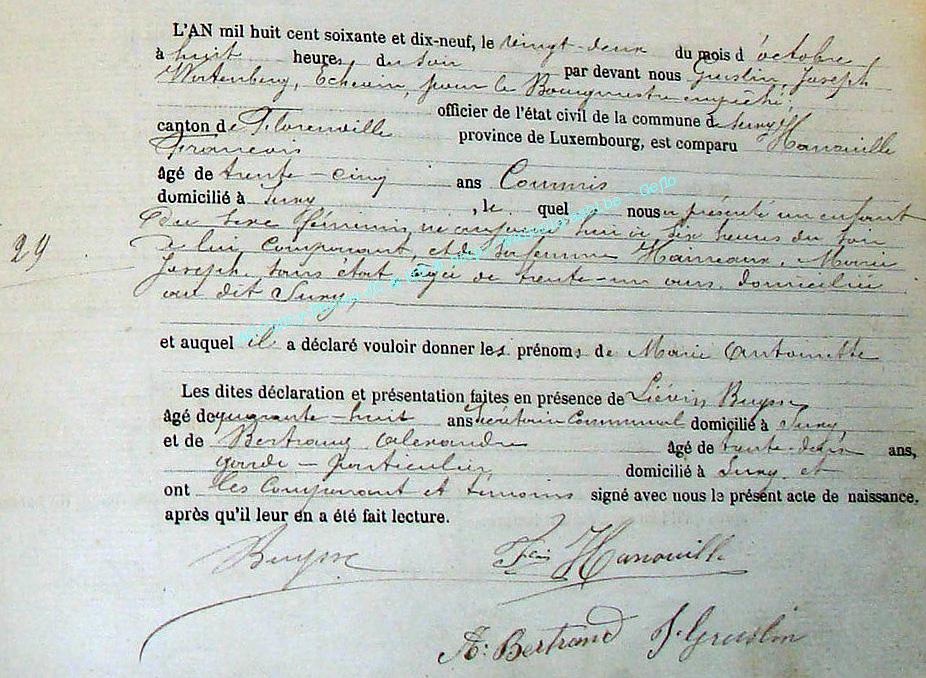 L'AN mil huit cent soixante et dix-neuf, le vingt-deux du mois d'octobre
à huit heures du soir par devant nous Joseph
Wortenberg, Echevin, pour le Bourgmestre empêché,
officier de l'état civil de la commune de Suxy
canton de Florenville province de Luxembourg, est comparu Hanouille
François
âgé de trente-cinq ans Commis
domicilié à Suxy, le quel nous a présenté un enfant
du sexe féminin, né aujourd'hui à six heures du soir
de lui comparant, et de sa femme Hameaux, Marie
Joseph, sans état, âgée de trente-un ans, domiciliée
au dit Suxy,
29
et auquel il a déclaré vouloir donner les prénoms de Marie Antoinette
Les dites déclaration et présentation faites en présence de Liévin Buysse
âgé de quarante-huit ans Secrétaire Communal domicilié à Suxy,
et de Bertrand Alexandre âgé de trente-deux ans,
garde-particulier domicilié à Suxy et
ont les Comparant et témoins signé avec nous le présent acte de naissance,
après qu'il leur en a été fait lecture.
Buysse Fçois Hanouille
A: Bertrand J. Greislin